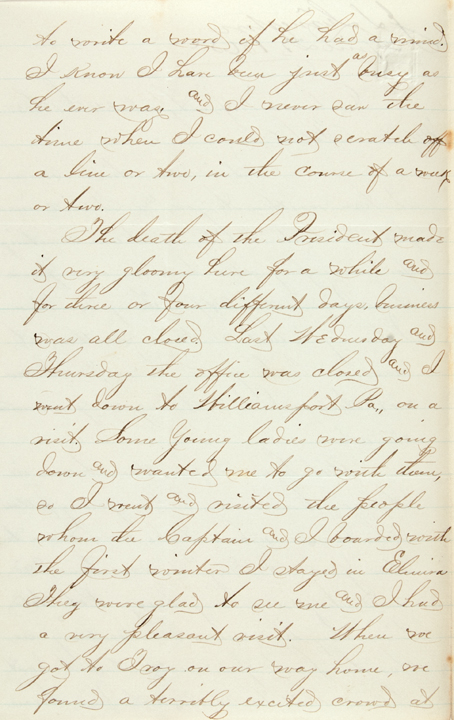 to write a word if he had a mind.
I know I have been just as busy as
he ever was, and I never saw the
time when I could not scratch off
a line or two, in the course of a week
or two.
The death of the President made
it very gloomy here for a while and
for three or four different days, business
was all closed. Last Wednesday and
Thursday the office was closed and I
went down to Williamsport Pa., on a
visit. Some Young ladies were going
down and wanted me to go with them,
so I went and visited the people
whom the Captain and I boarded with
the first winter I stayed in Elmira
They were glad to see me and I had
a very pleasant visit. When we
got to Troy on our way home, we
found a terribly excited crowd at